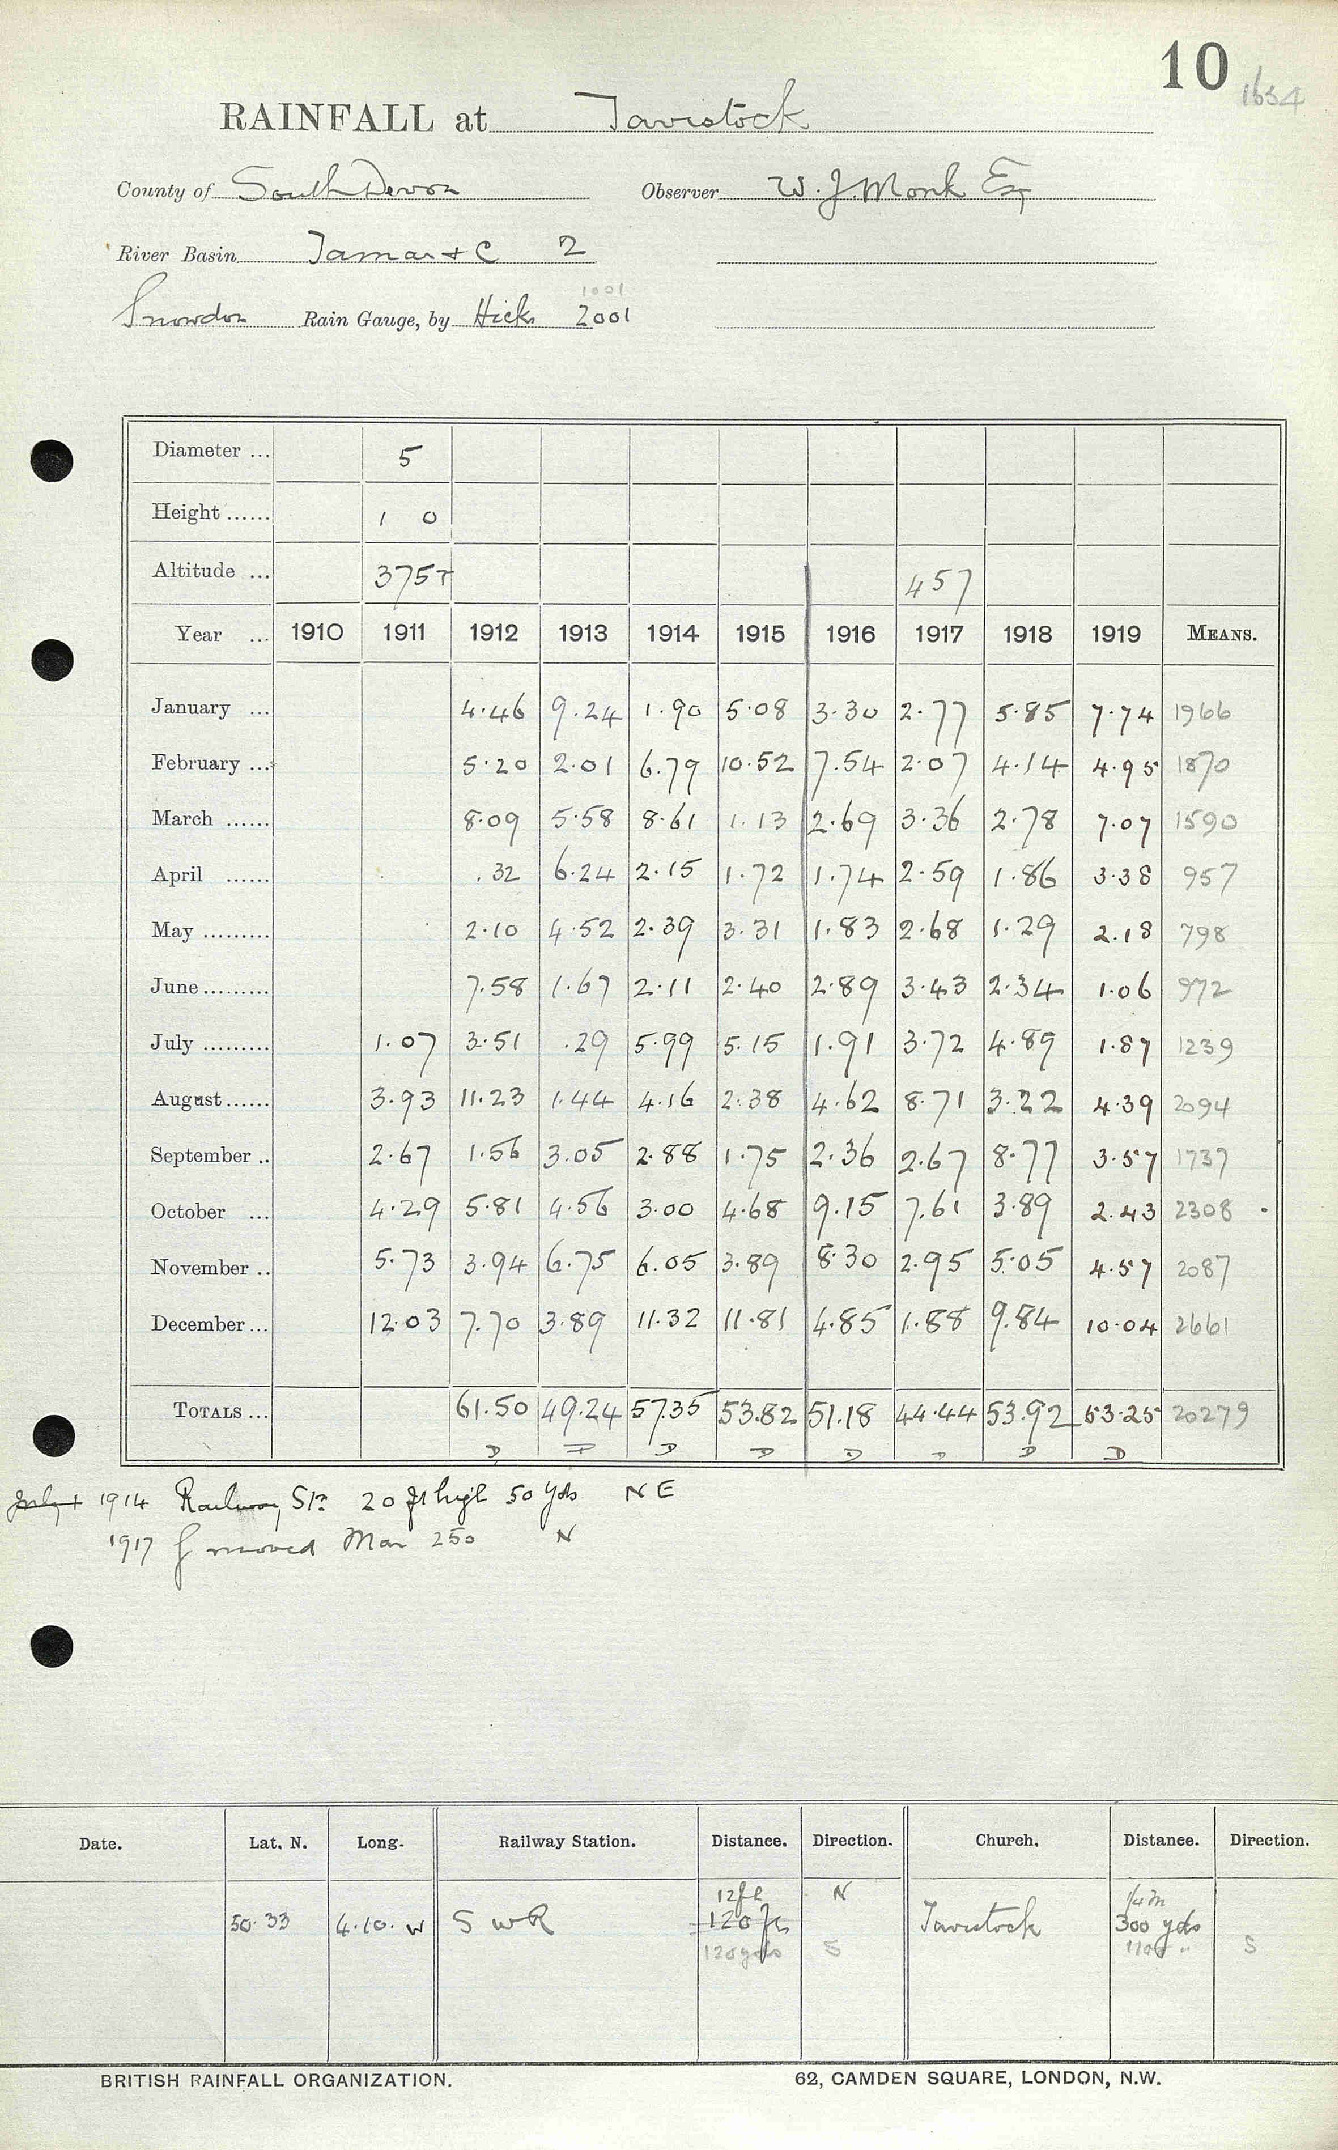 10
1654
RAINFALL at Tavistock
County of South Devon Observer W. J. Monk Esq
River Basin Tamar + C 2
1001
Snowdon Rain Gauge, by Hicks 2001
Diameter ... 5
Height ...... 1 0
Altitude ... 375+ 457
Year ... 1910 1911 1912 1913 1914 1915 1916 1917 1918 1919 MEANS.
January ... 4.46 9.24 1.90 5.08 3.30 2.77 5.85 7.74 1966
February ... 5.20 2.01 6.79 10.52 7.54 2.07 4.14 4.95 1870
March ...... 8.09 5.58 8.61 1.13 2.69 3.36 2.78 7.07 1590
April ...... .32 6.24 2.15 1.72 1.74 2.59 1.86 3.38 957
May ......... 2.10 4.52 2.39 3.31 1.83 2.68 1.29 2.18 798
June ......... 7.58 1.67 2.11 2.40 2.89 3.43 2.34 1.06 972
July ......... 1.07 3.51 .29 5.99 5.15 1.91 3.72 4.89 1.87 1239
August ...... 3.93 11.23 1.44 4.16 2.38 4.62 8.71 3.22 4.39 2094
September .. 2.67 1.56 3.05 2.88 1.75 2.36 2.67 8.77 3.57 1737
October ... 4.29 5.81 4.56 3.00 4.68 9.15 7.61 3.89 2.43 2308
November .. 5.73 3.94 6.75 6.05 3.89 8.30 2.95 5.05 4.57 2087
December ... 12.03 7.70 3.89 11.32 11.81 4.85 1.88 9.84 10.04 2661
TOTALS ... 61.50 49.24 57.35 53.82 51.18 44.44 53.92 53.25 20279
D D D D D D
1914 Railway Stn 20 ft high 50 yds NE
1917 g moved Mar 250 N
Date. Lat. N. Long. Railway Station. Distance. Direction. Church. Distance. Direction.
12 N 1/4 m
50.33 4.10. W S W R 120 Tavistock 300 yds
120 yds S 1100 " S
BRITISH RAINFALL ORGANIZATION. 62, CAMDEN SQUARE, LONDON, N.W.